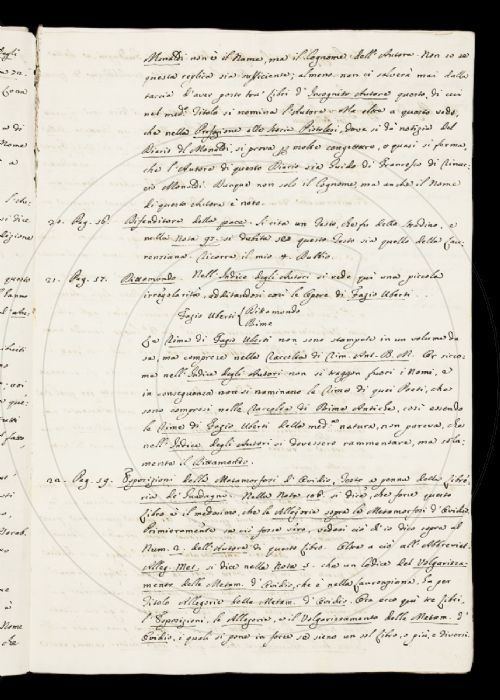 Monaldi non è il Nome, ma il Cognome dell'Autore. Non so se
questa replica sia sufficiente; almeno non ci salverà mai dalla
taccia d'aver posto tra' Libri d'Incognito Autore questo, di cui
nel med.º Titolo si nomina l'Autore. Ma oltre a questo vedo,
che nella Prefazione alle Storie Pistolesi, dove si dà notizia del
Diario del Monaldi, si prova p molte congetture, o quasi si ferma,
che l'Autore di questo Diario sia Guido di Francesco di
Monaldi. Dunque non solo il Cognome, ma anche il Nome
di questo Autore è noto.
20. Pag. 56. Difenditore della pace. Si cita un Testo, che fu dello Stradino, e
nella Nota 95. si dubita se questo Testo sia quello della Lau-
renziana. Ricorre il mio
21. Pag. 57. Dittamondo. Nell'Indice degli Autori si vede qui una piccola
irregolarità, additandosi così le Opere di Fazio Uberti . .
Fazio Uberti { Dittamondo
Rime
Le Rime di Fazio Uberti non sono stampate in un volume da
se, ma comprese nella Raccolta di Rim. Ant. B. M. Or sicco-
me nell'Indice degli Autori non si traggon fuori i Nomi, e
in conseguenza non si nominano le Rime di quei Poeti, che
sono compresi nelle Raccolte di Rime Antiche, così essendo
le Rime di Fazio Uberti della med.ª natura, non pareva, che
nell'Indice degli Autori si dovessero rammentare, ma sola-
mente il Dittamondo.
22. Pag. 59. Esposizioni delle Metamorfosi d'Ovidio, Testo a penna della Libre-
ria de' Guadagni. Nella Nota 106. si dice, che forse questo
Libro è il medesimo, che le Allegorie sopra le Metamorfosi d'Ovidio.
Primieramente se ciò fosse vero, vedasi ciò ch'io dico sopra al
Num. 2. dell'Autore di questo Libro. Oltre a ciò all'Abbreviat.
Alleg. Met. si dice nella Nota che un Codice del Volgarizza-
mento delle Metam. d'Ovidio, che è nella Laurenziana, ha per
Titolo Allegorie delle Metam. d'Ovidio. Ora ecco qui tre Libri,
l'Esposizioni, le Allegorie, e il Volgarizzamento delle Metam. d'
Ovidio, i quali si pone in forse se sieno un sol Libro, o più, e diversi.